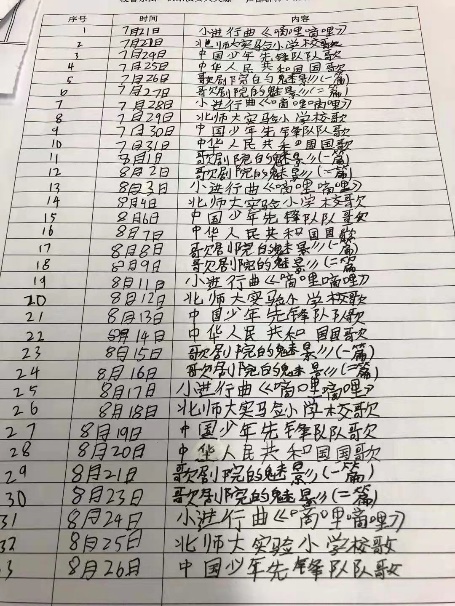 序号 时间 内容
1 7月21日 小进行曲《嘀哩嘀哩》
2 7月21日 北师大实验小学校歌
3 7月29日 中国少年先锋队队歌
4 7月25日 中华人民共和国国歌
5 7月26日 歌剧院的魅景》(一篇)
6 7月27日 歌剧院的魅景》(二篇)
7 7月28日 小进行曲《嘀哩嘀哩》
8 7月29日 北师大实验小学校歌
9 7月30日 中国少年先锋队队歌
10 7月31日 中华人民共和国国歌
11 8月1日 歌剧院的魅景》(一篇)
12 8月2日 歌剧院的魅景》(二篇)
13 8月3日 小进行曲《嘀哩嘀哩》
14 8月4日 北师大实验小学校歌
15 8月6日 中国少年先锋队队歌
16 8月7日 中华人民共和国国歌
17 8月8日 歌剧院的魅景》(一篇)
18 8月9日 歌剧院的魅景》(二篇)
19 8月11日 小进行曲《嘀哩嘀哩》
20 8月12日 北师大实验小学校歌
21 8月13日 中国少年先锋队队歌
22 8月14日 中华人民共和国国歌
23 8月15日 歌剧院的魅景》(一篇)
24 8月16日 歌剧院的魅景》(二篇)
25 8月17日 小进行曲《嘀哩嘀哩》
26 8月18日 北师大实验小学校歌
27 8月19日 中国少年先锋队队歌
28 8月20日 中华人民共和国国歌
29 8月21日 歌剧院的魅景》(一篇)
30 8月23日 歌剧院的魅景》(二篇)
31 8月24日 小进行曲《嘀哩嘀哩》
32 8月25日 北师大实验小学校歌
3 8月26日 中国少年先锋队队歌